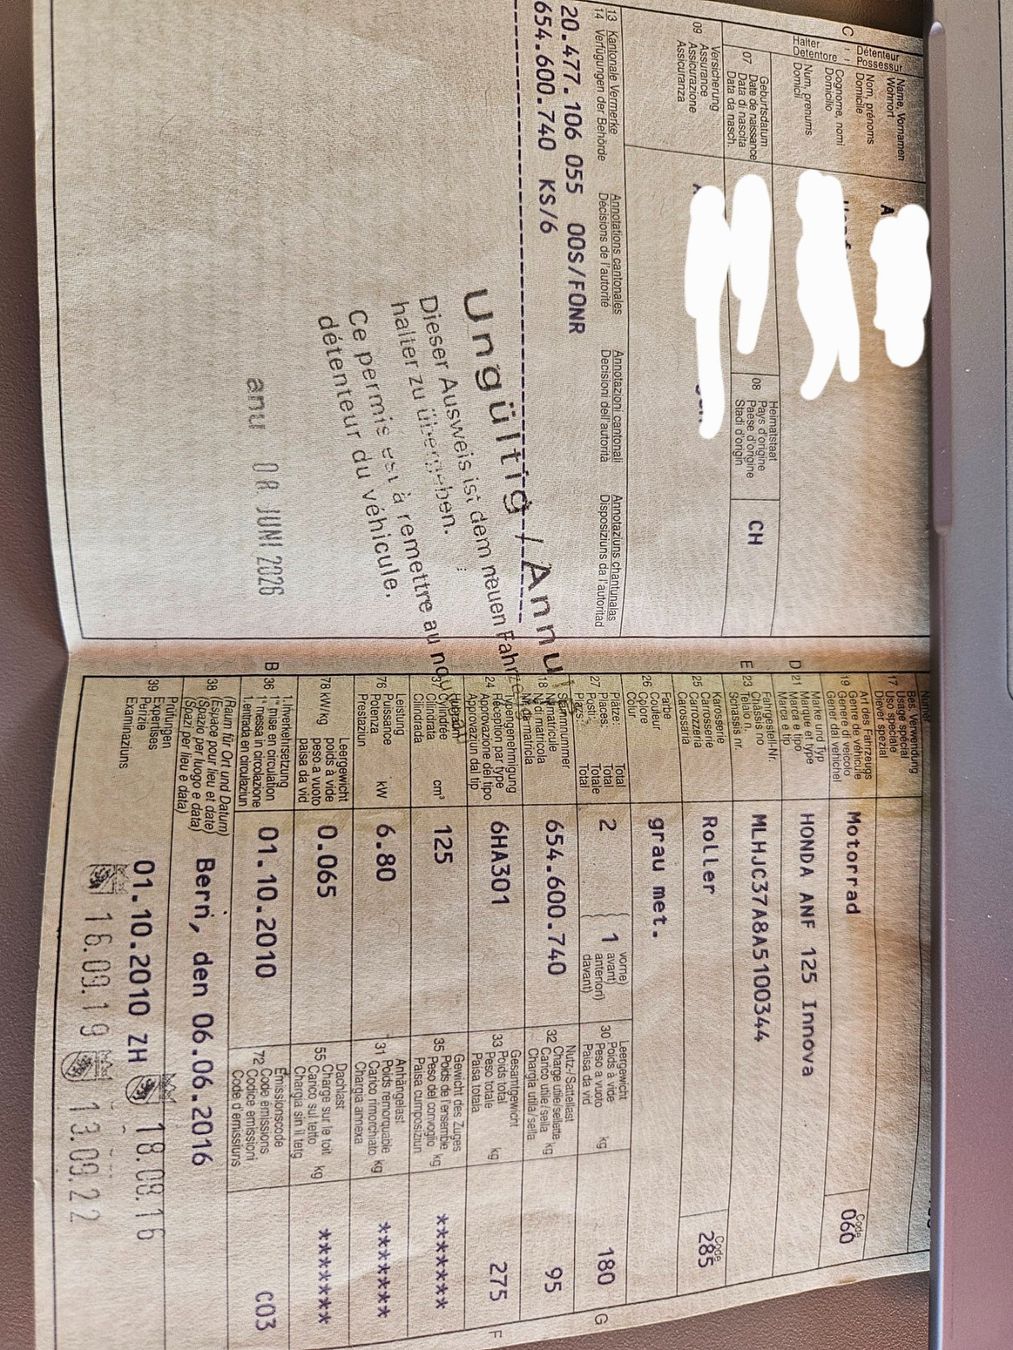 C
Détenteur
Possessur
Halter
Detentore
Name, Vornamen
Wohnort
Nom, prénoms
Domicile
Cognome, nomi
Domicilio
Num, prenums
Domicil
A
07
Geburtsdatum
Date de naissance
Data di nascita
Data da nasch.
08
Heimatstaat
Pays d'origine
Paese d'origine
Stadi d'origin
CH
09
Versicherung
Assurance
Assicurazione
Assicuranza
13 Kantonale Vermerke
14 Verfügungen der Behörde
Annotations cantonales
Décisions de l'autorité
Annotazioni cantonali
Decisioni dell'autorità
Annotaziuns chantunalas
Disposiziuns da l'autoritad
20.477.106 055 00S/FONR
654.600.740 KS/6
Ungültig / Annulé
Dieser Ausweis ist dem neuen
halter zu übergeben.
Ce permis est à remettre au
détenteur du véhicule.
anu 08 JUNI 2026
17
Bes. Verwendung
Usage spécial
Uso speciale
Diever spezial
19
Art des Fahrzeugs
Genre de véhicule
Genere di veicolo
Gener dal vehichel
Motorrad
Code
060
D 21
Marke und Typ
Marque et type
Marca e tipo
Marca e tip
HONDA ANF 125 Innova
E 23
Fahrgestell-Nr.
Châssis no
Telaio n.
Schassis nr.
MLHJC37A8A5100344
25
Karosserie
Carrosserie
Carrozzeria
Carossaria
Roller
Code
285
26
Farbe
Couleur
Colore
Colur
grau met.
27
Plätze:
Places:
Posti:
Total
Total
Totale
Total
2
1
vorne)
avant)
anteriori)
davant)
30
Leergewicht
Poids à vide
Peso a vuoto
Paisa da vid
kg
180
G
18
Stammnummer
Matricule
N. di matricola
Nr. da matricla
654.600.740
32
Nutz-/Sattellast
Charge utile/sellette
Carico utile/sella
Chargia utila/sella
kg
95
24
Typengenehmigung
Réception par type
Approvazione del tipo
Approvaziun dal tip
6HA301
33
Gesamtgewicht
Poids total
Peso totale
Paisa totala
kg
275
F
37
Hubraum
Cylindrée
Cilindrata
Cilindrada
cm³
125
35
Gewicht des Zuges
Poids de l'ensemble
Peso del convoglio
Paisa cumposiziun
kg
*******
76
Leistung
Puissance
Potenza
Prestaziun
kW
6.80
31
Anhängelast
Poids remorquable
Carico rimorchiato
Chargia annexa
kg
*******
78 kW/kg
Leergewicht
poids à vide
peso a vuoto
paisa da vid
0.065
55
Dachlast
Charge sur le toit
Carico sul tetto
Chargia sin il tetg
kg
*******
B 36
1. Inverkehrsetzung
1re mise en circulation
1a messa in circolazione
1. entrada en circulaziun
01.10.2010
72
Emissionscode
Code émissions
Codice emissioni
Code d'emissiuns
C03
38
(Raum für Ort und Datum)
(Espace pour lieu et date)
(Spazio per luogo e data)
(Spazi per lieu e data)
Bern, den 06.06.2016
39
Prüfungen
Expertises
Perizie
Examinaziuns
01.10.2010 ZH
18.08.16
16.09.19
13.09.22